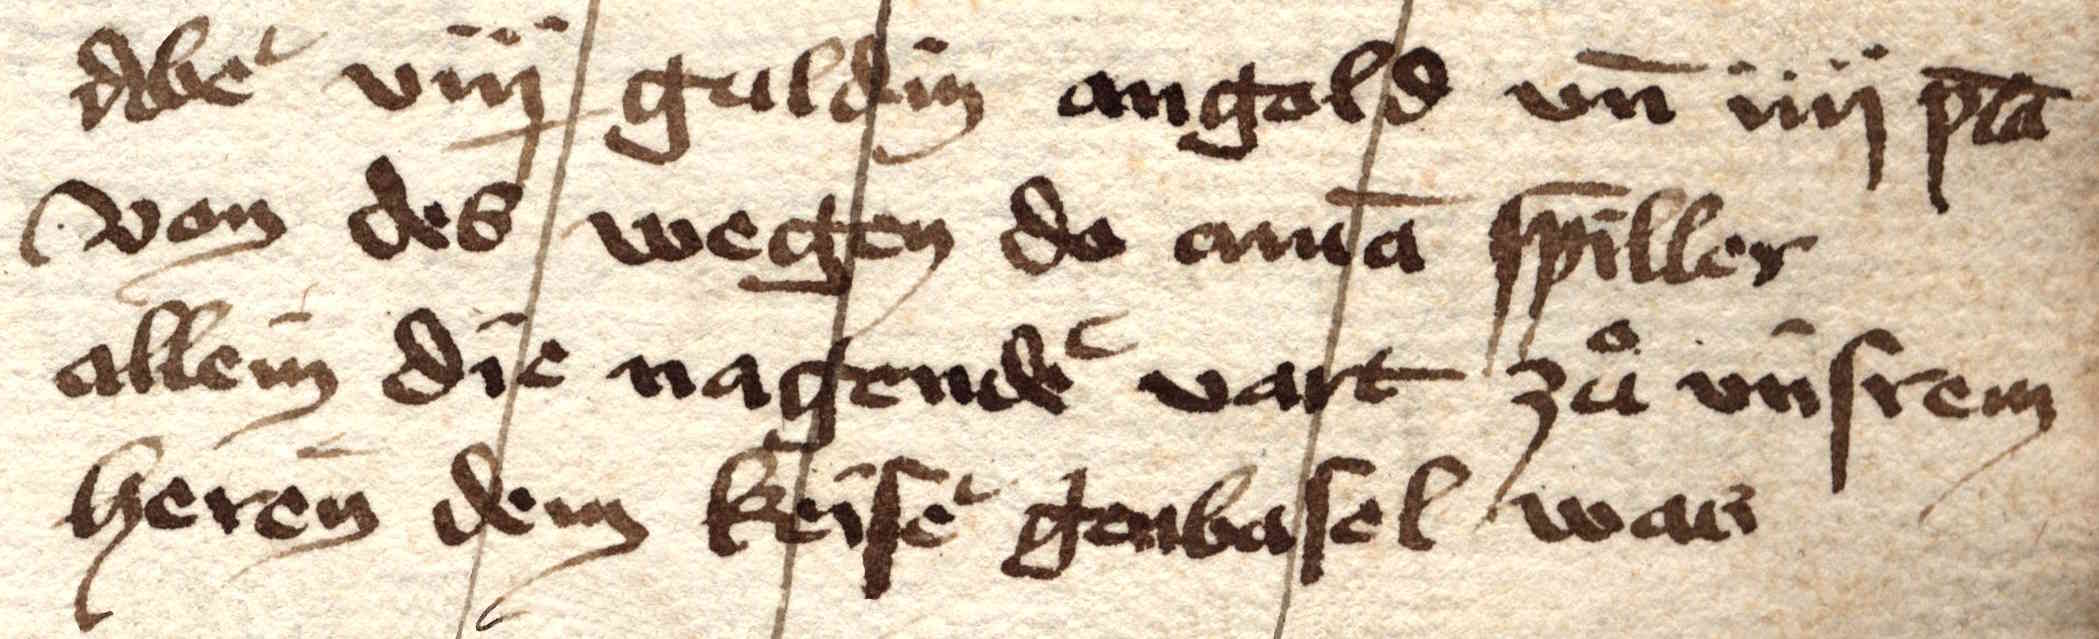 dbe᷑ viij guldin angold vn̄ iiij pla
von des wegen do aman̄ spiller
allein die nagende᷑ vart zů vnsrem
heren̄ dem keise᷑ gen basel was